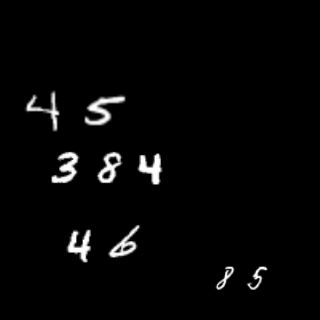 45
384
46
85